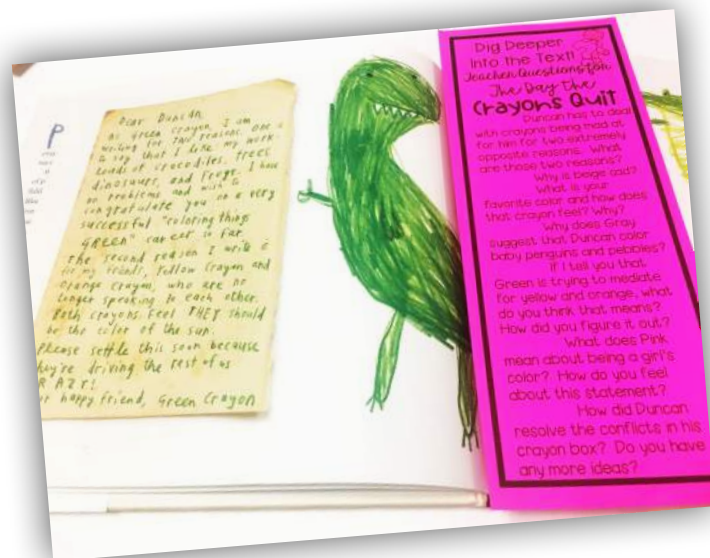 P
Dear Duncan,
As Green Crayon, I am
writing for two reasons. One is
to say that I like my work -
loads of crocodiles, trees,
dinosaurs, and frogs. I have
no problems and wish to
congratulate you on a very
successful "coloring things
GREEN" career so far.
The second reason I write is
for my friends, Yellow Crayon and
Orange Crayon, who are no
longer speaking to each other.
Both crayons feel THEY should
be the color of the sun.
Please settle this soon because
they're driving the rest of us
CRAZY!
Your happy friend, Green Crayon
Dig Deeper
Into the Text!
Teacher Questions for
The Day the
Crayons Quit
Duncan has to deal
with crayons being mad at
for him for two extremely
opposite reasons. What
are those two reasons?
Why is beige sad?
What is your
favorite color and how does
that crayon feel? Why?
Why does Gray
suggest that Duncan color
baby penguins and pebbles?
If I tell you that
Green is trying to mediate
for yellow and orange, what
do you think that means?
How did you figure it out?
What does Pink
mean about being a girl's
color? How do you feel
about this statement?
How did Duncan
resolve the conflicts in his
crayon box? Do you have
any more ideas?